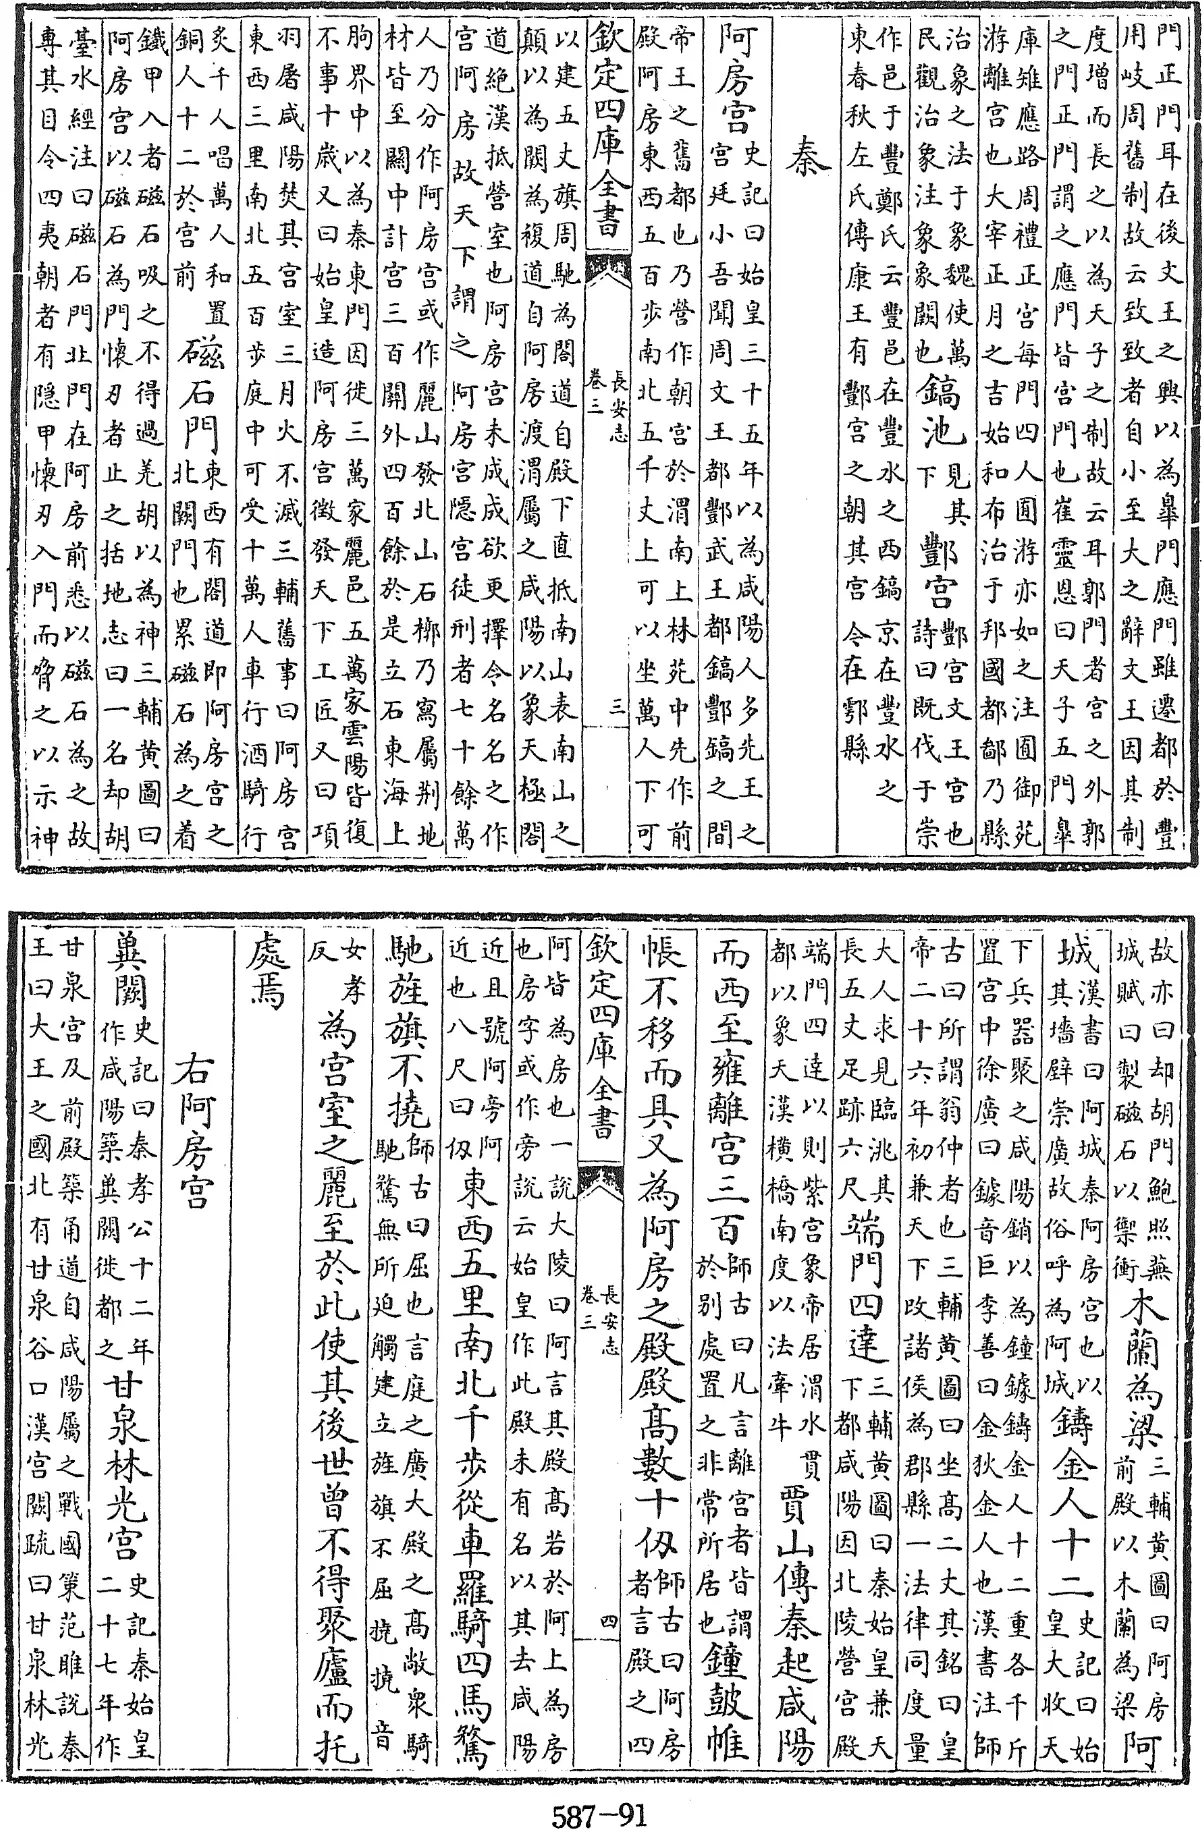 門正門耳在後文王之興以為臯門應門雖遷都於豐
用岐周舊制故云致致者自小至大之辭文王因其制
度增而長之以為天子之制故云耳郭門者宫之外郭
之門正門謂之應門皆宫門也崔靈恩曰天子五門臯
庫雉應路周禮正宫每門四人囿游亦如之注囿御苑
游離宫也大宰正月之吉始和布治于邦國都鄙乃縣
治象之法于象魏使萬民觀治象注象象闕也鎬池見其下酆宫酆宫文王宫也詩曰既伐于崇
作邑于豐鄭氏云豐邑在豐水之西鎬京在豐水之
東春秋左氏傳康王有酆宫之朝其宫今在鄠縣
秦
阿房宫史記曰始皇三十五年以為咸陽人多先王之宫廷小吾聞周文王都酆武王都鎬酆鎬之間
帝王之舊都也乃營作朝宫於渭南上林苑中先作前
殿阿房東西五百步南北五千丈上可以坐萬人下可
欽定四庫全書
長安志
卷三
三
以建五丈旗周馳為閣道自殿下直抵南山表南山之
顛以為闕為複道自阿房渡渭屬之咸陽以象天極閣
道絶漢抵營室也阿房宫未成成欲更擇令名名之作
宫阿房故天下謂之阿房宫隱宫徒刑者七十餘萬
人乃分作阿房宫或作麗山發北山石槨乃寫屬荆地
材皆至關中計宫三百關外四百餘於是立石東海上
朐界中以為秦東門因徙三萬家麗邑五萬家雲陽皆復
不事十歲又曰始皇造阿房宫徵發天下工匠又曰項
羽屠咸陽焚其宫室三月火不滅三輔舊事曰阿房宫
東西三里南北五百步庭中可受十萬人車行酒騎行
炙千人唱萬人和置銅人十二於宫前磁石門東西有閣道即阿房宫之北闕門也累磁石為之着
鐵甲入者磁石吸之不得過羌胡以為神三輔黄圖曰
阿房宫以磁石為門懷刃者止之括地志曰一名却胡
臺水經注曰磁石門北門在阿房前悉以磁石為之故
專其目令四夷朝者有隱甲懷刃入門而脅之以示神
故亦曰却胡門鮑照蕪城賦曰製磁石以禦衝木蘭為梁三輔黄圖曰阿房前殿以木蘭為梁阿
城漢書曰阿城秦阿房宫也以其墻壁崇廣故俗呼為阿城鑄金人十二史記曰始皇大收天
下兵器聚之咸陽銷以為鐘鐻鑄金人十二重各千斤
置宫中徐廣曰鐻音巨李善曰金狄金人也漢書注師
古曰所謂翁仲者也三輔黄圖曰坐高二丈其銘曰皇
帝二十六年初兼天下改諸侯為郡縣一法律同度量
大人求見臨洮其長五丈足跡六尺端門四達三輔黄圖曰秦始皇兼天下都咸陽因北陵營宫殿
端門四達以則紫宫象帝居渭水貫都以象天漢横橋南度以法牽牛賈山傳秦起咸陽
而西至雍離宫三百師古曰凡言離宫者皆謂於别處置之非常所居也鐘鼓帷
帳不移而具又為阿房之殿殿髙數十仭師古曰阿房者言殿之四
欽定四庫全書
長安志
卷三
四
阿皆為房也一說大陵曰阿言其殿髙若於阿上為房
也房字或作旁説云始皇作此殿未有名以其去咸陽
近且號阿旁阿近也八尺曰仭東西五里南北千步從車羅騎四馬騖
馳旌旗不撓師古曰屈也言庭之廣大殿之髙敞衆騎馳騖無所迫觸建立旌旗不屈撓撓音
女孝反為宫室之麗至於此使其後世曾不得聚廬而托
處焉
右阿房宫
兾闕史記曰秦孝公十二年作咸陽築兾闕徙都之甘泉林光宫史記秦始皇二十七年作
甘泉宫及前殿築甬道自咸陽屬之戰國策范睢説秦
王曰大王之國北有甘泉谷口漢宫闕疏曰甘泉林光
587-91